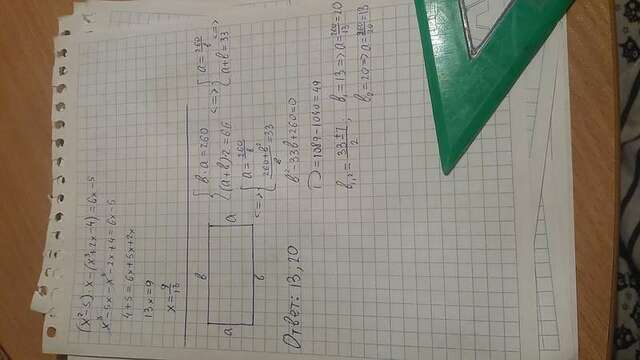 (x²-5)·x-(x³+2x-4)=6x-5
x³-5x-x³-2x+4=6x-5
4+5=6x+5x+2x
13x=9
x=9/13
a
в
в
a
{ в·a=260
(a+в)·2=66 <=> { a=260/в
a+в=33 <=>
<=> { a=260/в
(260+в²)/в=33
в²-33в+260=0
D=1089-1040=49
в₁,₂=(33±7)/2; в₁=13 => a=260/13=20
в₂=20 => a=260/20=13
Ответ: 13, 20